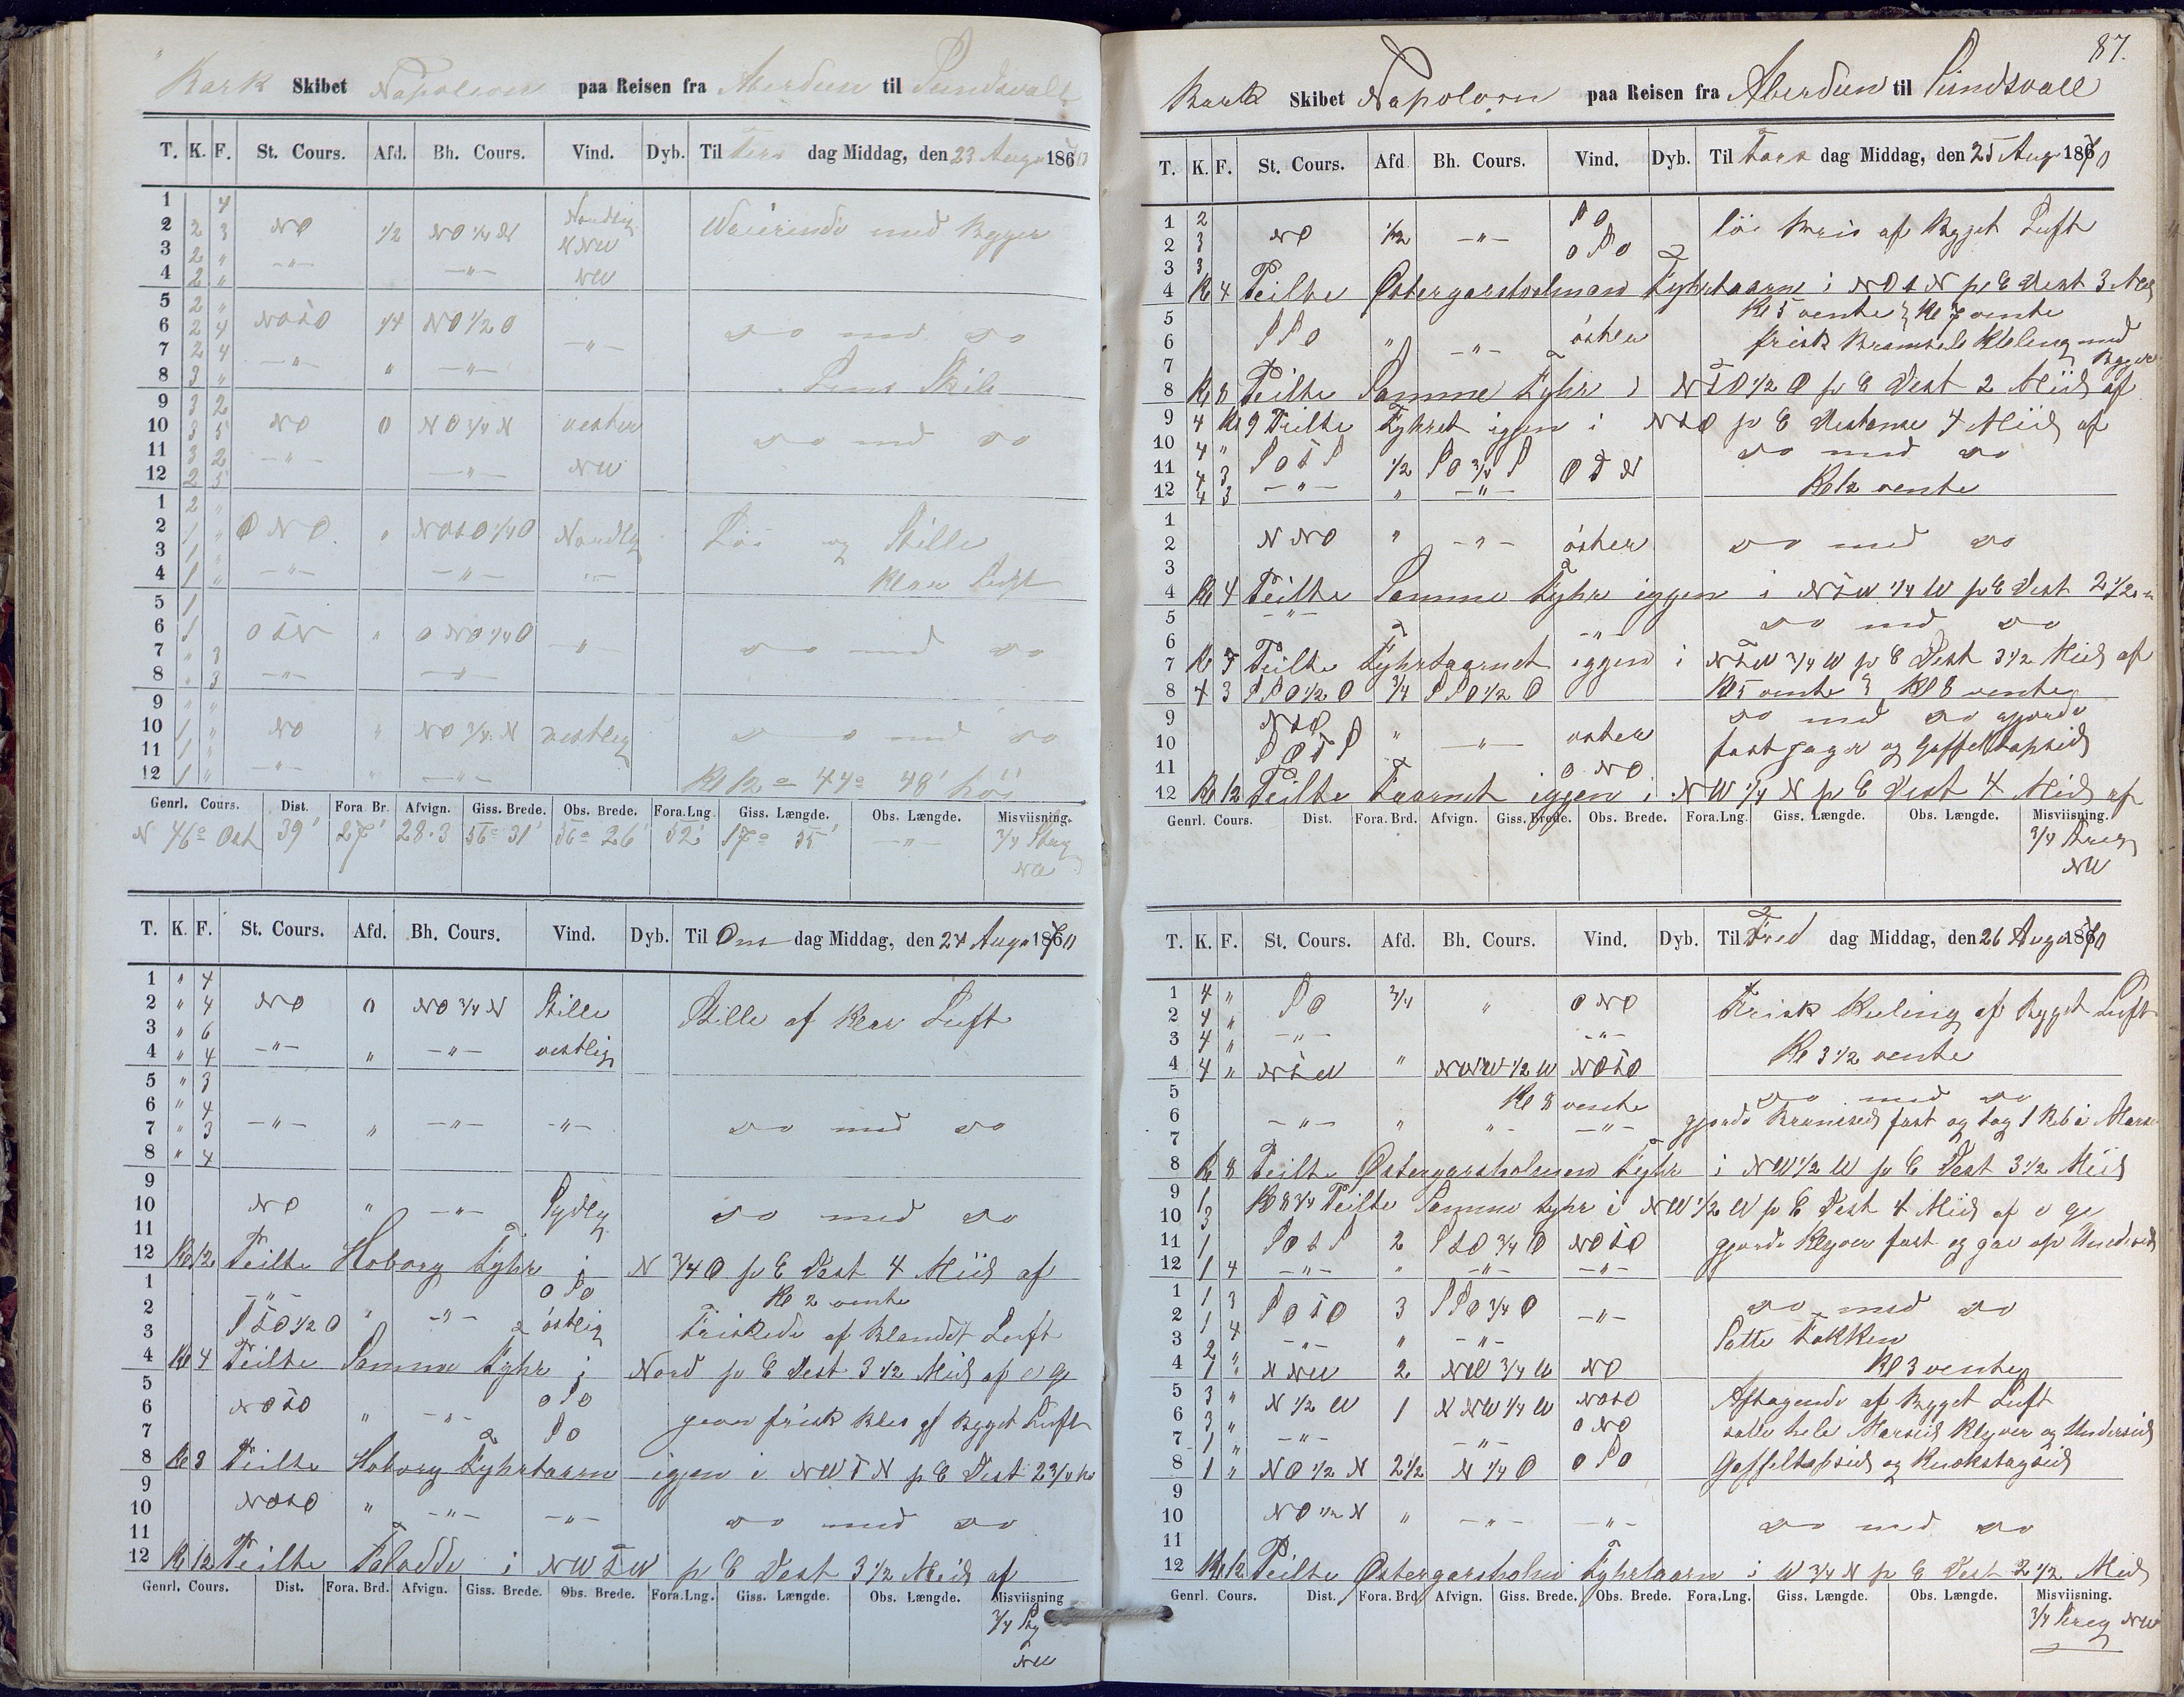 Bark Skibet Napoleon paa Reisen fra Aberdeen til Sundsvall
T. K. F. St. Cours. Afd. Bh. Cours. Vind. Dyb. Til Tirs dag Middag, den 23 Augu 1870
1 4
2 2 3 NO 1/2 NO 1/4 N Nordlig Weirende med Bygger
3 2 " NNW
4 2 " -"- -"- NW
5 2 "
6 2 4 NOtO 1/4 NO 1/2 O do med do
7 2 4 -"-
8 3 " -"- " -"-
9 3 2
10 3 5 NO 0 NO 3/4 N vester do med do
11 3 2
12 2 5 -"- -"- NW
1 2 "
2 1 " ONO. " NOtO 1/4 O Nordlig Löi og Stille
3 1 "
4 1 " -"- -"- -"- Klar Luft
5 1
6 1 OtN " ONO 1/4 O -"-
7 " 3 do med do
8 " 3 -"- -"-
9 " "
10 1 " NO " NO 3/4 N vestlig do med do
11 1 "
12 1 " -"- " -"- Kl 12 = 44° 48' höi
Genrl. Cours. Dist. Fora. Br. Afvign. Giss. Brede. Obs. Brede. Fora.Lng. Giss. Længde. Obs. Længde. Misviisning.
N 46° Ost 39' 27' 28.3 56° 31' 56° 26' 52' 17° 35' -"- 3/4 Streg
NW
T. K. F. St. Cours. Afd. Bh. Cours. Vind. Dyb. Til Ons dag Middag, den 24 Augu 1870
1 " 4
2 " 4 NO 0 NO 3/4 N Stille Stille af Klar Luft
3 " 6
4 " 4 -"- " -"- vestlig
5 " 3
6 " 4
7 " 3 -"- " -"- -"- do med do
8 " 4
9
10 NO " -"- Sydlig do med do
11
12 Kl 12 Peilte Hoborg Fyhr i N 3/4 O p C Dest 4 Miil af
1 -"- OSO Kl 2 vente
2 StO 1/2 O " -"- östlig Friskede af Blandet Luft
3
4 Kl 4 Peilte Samme Fyhr i Nord p C Dest 3 1/2 Miil af
5
6 NOtO " -"- OSO jevn frisk Kles af Bygget Luft
7 SO
8 Kl 8 Peilte Hoborg Fyhrtaarn igen i NWtN p C Dest 2 3/4
9
10 NOtO " -"- -"- do med do
11
12 Kl 12 Peilte i NWtW p C Dest 3 1/2 Miil af
Genrl. Cours. Dist. Fora. Brd. Afvign. Giss. Brede. Obs. Brede. Fora.Lng. Giss. Længde. Obs. Længde. Misviisning
3/4 Stg
NW
87.
Bark Skibet Napoleon paa Reisen fra Aberdeen til Sundsvall
T. K. F. St. Cours. Afd. Bh. Cours. Vind. Dyb. Til Tors dag Middag, den 25 Aug 1870
1 2 SO
2 3 NO 1/2 -"- OSO löi Bris af Bygget Luft
3 3
4 Kl 4 Peilte Østergarsholmen Fyhrtaarn i NOtN p C Dest 3 Miil
5 Kl 5 vente Kl 7 vente
6 SSO " -"- öster frisk Bramseils Kuling med
7 Bygger
8 Kl 8 Peilte Samme Fyhr i NtO 1/2 O p C Dest 2 Miil af
9 4 Kl 9 Peilte Fyhret igen i NtO p C Destanse 4 Miil af
10 4 " do med do
11 4 3 SOtS 1/2 SO 3/4 S OtN
12 4 3 -"- " -"- Kl 12 vente
1
2 NNO " -"- öster do med do
3
4 Kl 4 Peilte Samme Fyhr iggen i NtW 1/4 W p C Dest 2 1/2
5 -"-
6 -"- do med do
7 Kl 7 Peilte Fyhrtaarnet iggen i NtW 3/4 W p C Dest 3 1/2 Miil af
8 4 3 SSO 1/2 O 3/4 SSO 1/2 O Kl 5 vente Kl 8 vente
9 NtO do med do gjorde
10 SOtS " -"- oster fast Jager og Gaffeltopseil
11 ONO
12 Kl 12 Peilte Taarnet iggen i NW 1/4 N p C Dest 4 Miil af
Genrl. Cours. Dist. Fora. Brd. Afvign. Giss. Brede. Obs. Brede. Fora.Lng. Giss. Længde. Obs. Længde. Misviisning.
3/4 Streg
NW
T. K. F. St. Cours. Afd. Bh. Cours. Vind. Dyb. Til Fred dag Middag, den 26 Augu 1870
1 4 " SO 3/4 " ONO Frisk Kuling af Bygget Luft
2 4 "
3 4 " -"- -"- Kl 3 1/2 vente
4 4 " NtW " NNW 1/2 W NOtO
5 Kl 8 vente do med do
6 -"- " "- -"- gjorde Bramseil fast og tog 1 Reb i
7
8 Kl 8 Peilte Østergarsholmen Fyhr i NW 1/2 W p C Dest 3 1/2 Miil
9 1 Kl 8 3/4 Peilte Samme Fyhr i NW 1/2 W p C Dest 4 Miil af
10 3
11 1 SOtS 2 StO 3/4 O NOtO gjorde Klyver fast og gav op Underseil
12 1 4 -"- " -"- -"-
1 1 3
2 1 4 SOtO 3 SSO 3/4 O -"- do med do
3 2 " -"- " -"- Satte Fokken
4 1 " NNW 2 NW 3/4 W NO Kl 3 vente
5 3 " N 1/2 W 1 NNW 1/4 W NOtO Aftagende af Bygget Luft
6 3 " ONO satte hele Marseil Klyver og Underseil
7 1 " -"- -"-
8 1 " NO 1/2 N 2 1/2 N 1/4 O OSO Gaffeltopseil og Rukstagseil
9
10 NO 1/2 N " -"- -"- do med do
11
12 Kl 12 Peilte Østergarsholm Fyhrtaarn i W 3/4 N p C Dest 2 1/2 Miil
Genrl. Cours. Dist. Fora. Brd. Afvign. Giss. Brede. Obs. Brede. Fora.Lng. Giss. Længde. Obs. Længde. Misviisning.
3/4 Streg NW